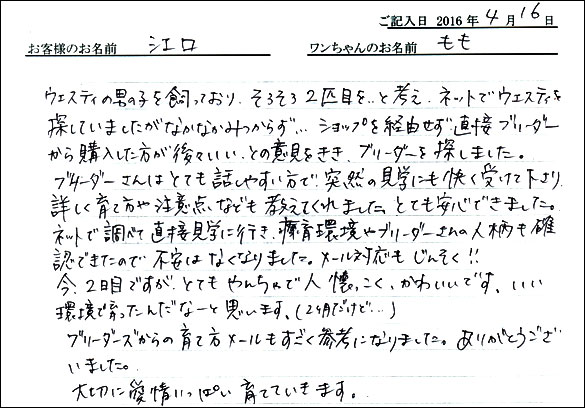 ご記入日 2016年 4月 16日
お客様のお名前 江口 ワンちゃんのお名前 もも
ウエスティの男の子を飼っており、そろそろ2匹目を..と考え、ネットでウエスティを
探していましたがなかなかみつからず... ショップを経由せず直接ブリーダー
から購入した方が後々いい、との意見をきき、ブリーダーを探しました。
ブリーダーさんはとても話しやすい方で、突然の見学にも快く受けて下さり、
詳しく育て方や注意点なども教えてくれました。とても安心できました。
ネットで調べて直接見学に行き、療育環境やブリーダーさんの人柄も確
認できたので不安はなくなりました。メール対応もじんそく!!
今、2日目ですが、とてもやんちゃで人懐っこく、かわいいです。いい
環境で育ったんだなーと思います。(2ヶ月だけど...)
ブリーダーズからの育て方メールもすごく参考になりました。ありがとうござ
いました。
大切に愛情いっぱい育てていきます。